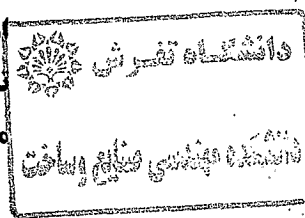 دانشگاه تفرش
دانشکده مهندسی صنایع وساخت